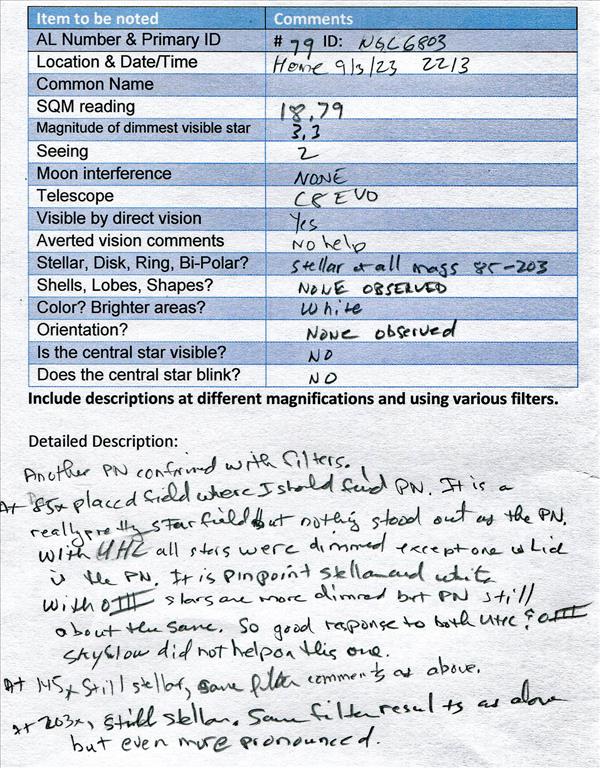 Item to be noted Comments
AL Number & Primary ID # 79 ID: NGC6803
Location & Date/Time Home 9/3/23 2213
Common Name
SQM reading 18.79
Magnitude of dimmest visible star 3.3
Seeing 2
Moon interference NONE
Telescope C8 EVO
Visible by direct vision Yes
Averted vision comments No help
Stellar, Disk, Ring, Bi-Polar? stellar at all mags 85-203
Shells, Lobes, Shapes? NONE OBSERVED
Color? Brighter areas? White
Orientation? None observed
Is the central star visible? NO
Does the central star blink? NO
Include descriptions at different magnifications and using various filters.
Detailed Description:
Another PN confirmed with filters.
At 85x placed field where I should find PN. It is a
really pretty star field but nothing stood out as the PN.
With UHC all stars were dimmed except one which
is the PN. It is pinpoint stellar and white
With OIII stars are more dimmed but PN still
about the same. So good response to both UHC & OIII
Skyglow did not help on this one.
At 145x Still stellar, same filter comments as above.
At 203x, still stellar. Same filter results as above
but even more pronounced.